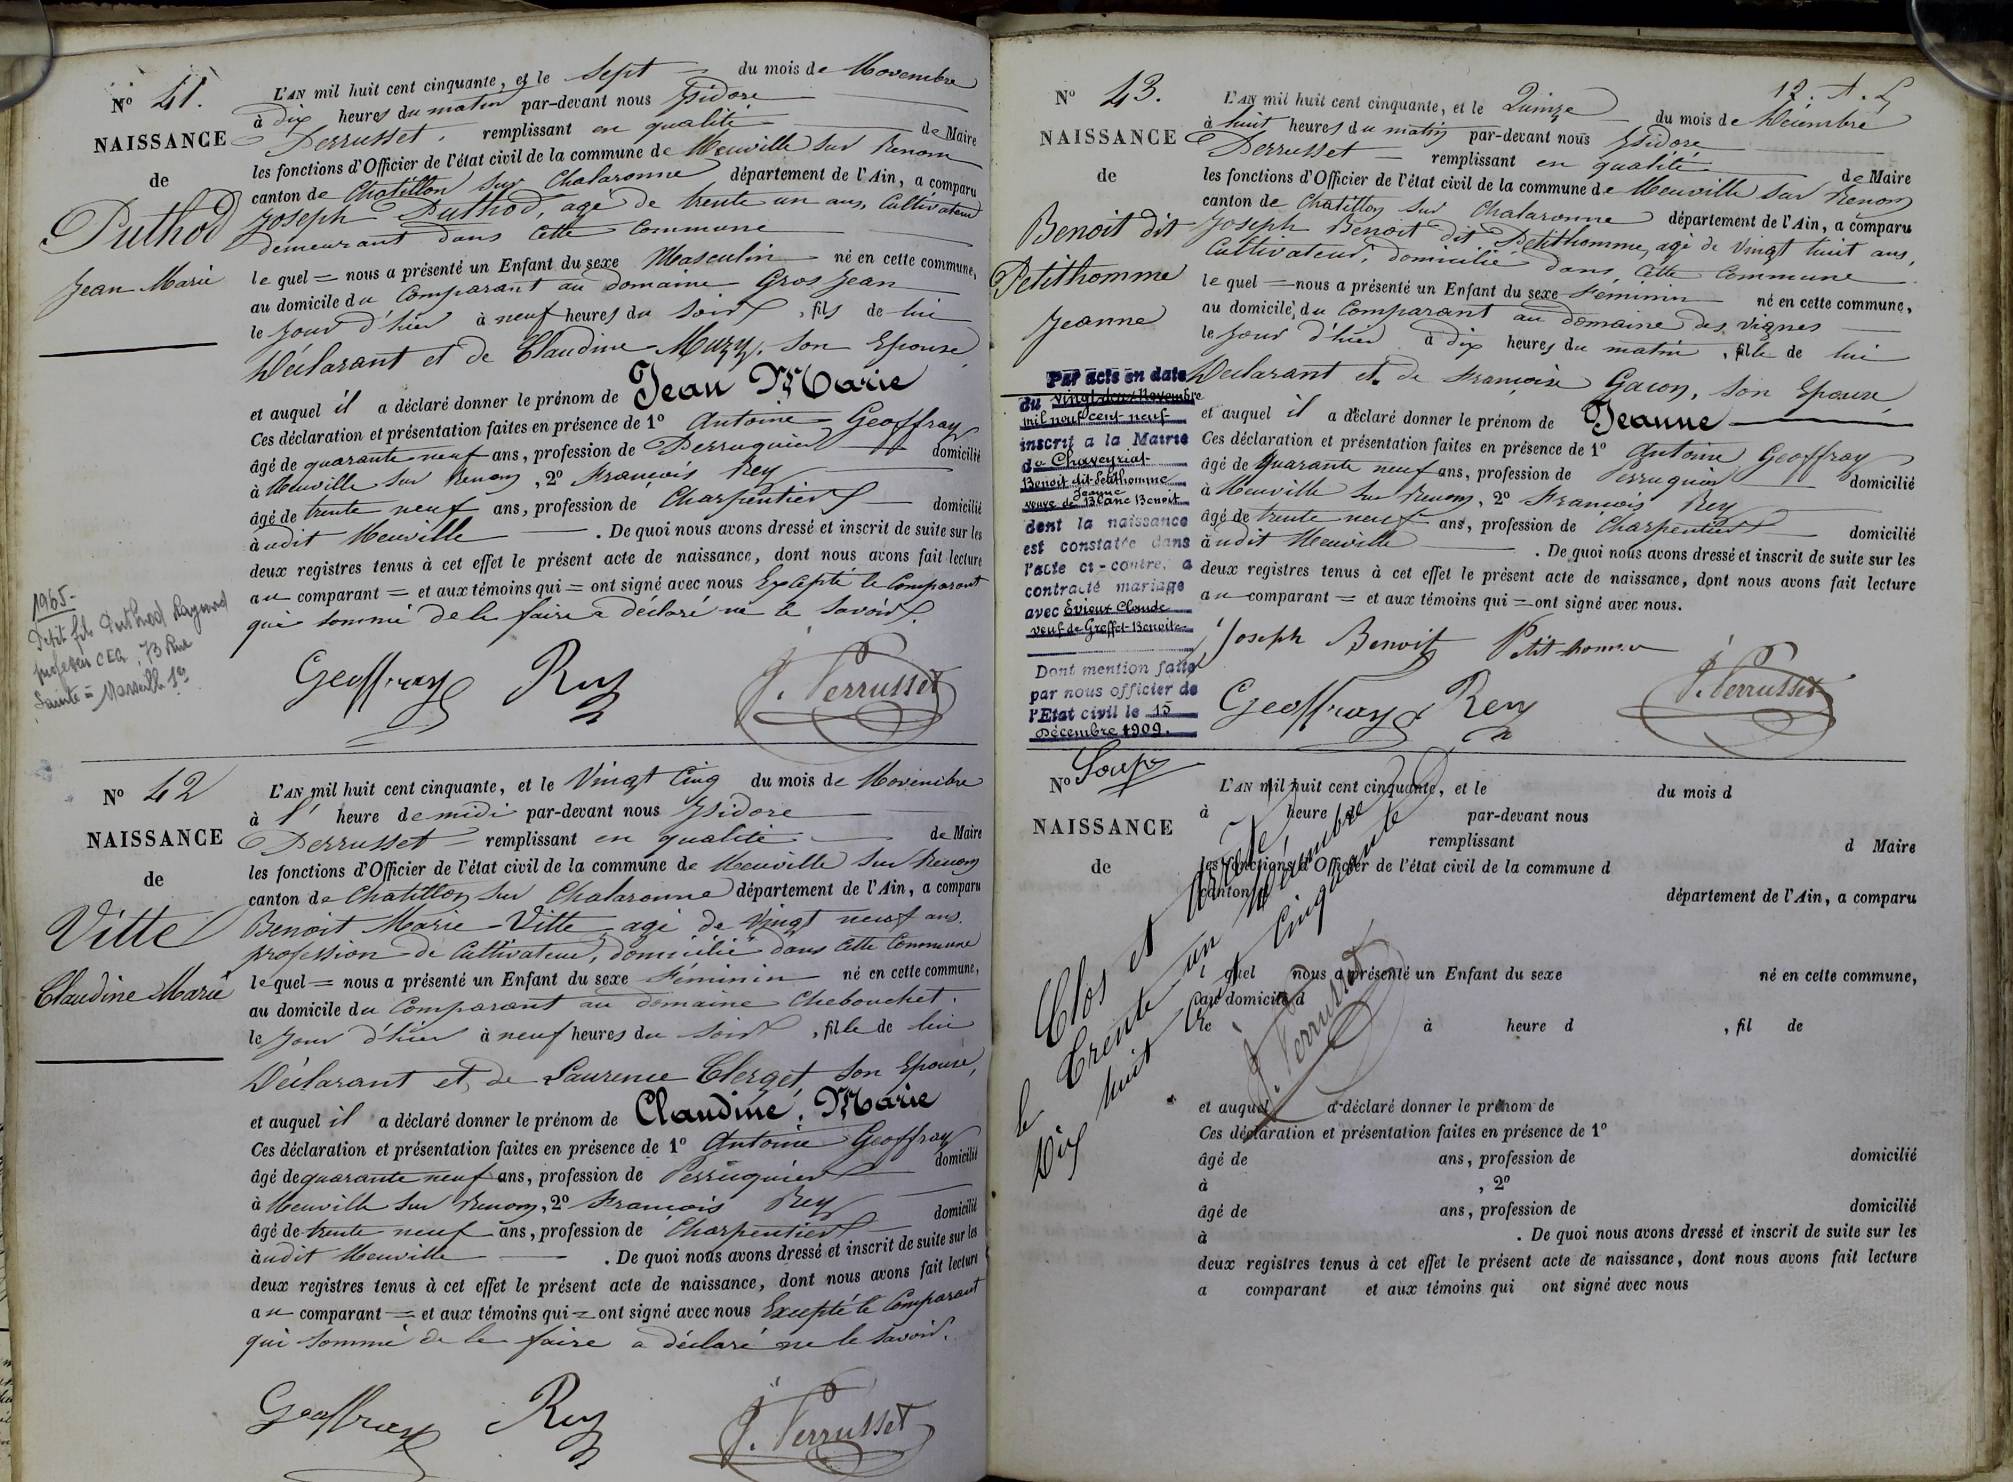 N° 41.
NAISSANCE
de
Puthod
Jean Marie
L'AN mil huit cent cinquante, et le Sept du mois de Novembre
à dix heures du matin par-devant nous Isidore
Perrusset remplissant en qualité de Maire
les fonctions d'Officier de l'état civil de la commune de Neuville sur Renom
canton de Chatillon sur Chalaronne département de l'Ain, a comparu
Joseph Puthod, agé de trente un ans, Cultivateur
demeurant dans cette commune
le quel = nous a présenté un Enfant du sexe Masculin né en cette commune,
au domicile du Comparant au domaine Gros Jean
le jour d'hier à neuf heures du soir, fils de lui
Déclarant et de Claudine Muzy, son Epouse
et auquel il a déclaré donner le prénom de Jean Marie
Ces déclaration et présentation faites en présence de 1° Antoine Geoffray
âgé de quarante neuf ans, profession de Perruquier domicilié
à Neuville sur Renom, 2° François Rey
âgé de trente neuf ans, profession de Charpentier domicilié
audit Neuville . De quoi nous avons dressé et inscrit de suite sur les
deux registres tenus à cet effet le présent acte de naissance, dont nous avons fait lecture
au comparant = et aux témoins qui = ont signé avec nous Excepté le Comparant
qui sommé de le faire a déclaré ne le savoir.
Geoffray Rey J. Perrusset
1965 -
Petit fils Puthod Raymond
professeur CEG, 73 Rue
Sainte = Marseille 1er
N° 42
NAISSANCE
de
Vitte
Claudine Marie
L'AN mil huit cent cinquante, et le Vingt Cinq du mois de Novembre
à l' heure de midi par-devant nous Isidore
Perrusset remplissant en qualité de Maire
les fonctions d'Officier de l'état civil de la commune de Neuville sur Renom
canton de Chatillon sur Chalaronne département de l'Ain, a comparu
Benoit Marie Vitte agé de Vingt neuf ans.
profession de Cultivateur, domicilié dans cette Commune
le quel = nous a présenté un Enfant du sexe Féminin né en cette commune,
au domicile du Comparant au domaine Chebouchet.
le jour d'hier à neuf heures du soir, fille de lui
Déclarant et de Laurence Clerget son Epouse,
et auquel il a déclaré donner le prénom de Claudine, Marie
Ces déclaration et présentation faites en présence de 1° Antoine Geoffray
âgé de quarante neuf ans, profession de Perruquier domicilié
à Neuville sur Renom, 2° François Rey
âgé de trente neuf ans, profession de Charpentier domicilié
audit Neuville . De quoi nous avons dressé et inscrit de suite sur les
deux registres tenus à cet effet le présent acte de naissance, dont nous avons fait lecture
au comparant = et aux témoins qui = ont signé avec nous Excepté le Comparant
qui sommé de le faire a déclaré ne le savoir.
Geoffray Rey J. Perrusset
N° 43.
NAISSANCE
de
Benoit dit
Petithomme
Jeanne
L'AN mil huit cent cinquante, et le Quinze du mois de Décembre
à huit heures du matin par-devant nous Isidore
Perrusset remplissant en qualité de Maire
les fonctions d'Officier de l'état civil de la commune de Neuville sur Renom
canton de Chatillon sur Chalaronne département de l'Ain, a comparu
Joseph Benoit dit Petithomme, agé de Vingt huit ans,
Cultivateur, domicilié dans cette Commune
le quel = nous a présenté un Enfant du sexe Féminin né en cette commune,
au domicile du Comparant au domaine des Vignes
le jour d'hier à dix heures du matin, fille de lui
Déclarant et de Françoise Gacon, son Epouse,
et auquel il a déclaré donner le prénom de Jeanne
Ces déclaration et présentation faites en présence de 1° Antoine Geoffray
âgé de Quarante neuf ans, profession de Perruquier domicilié
à Neuville sur Renom, 2° François Rey
âgé de trente neuf ans, profession de Charpentier domicilié
audit Neuville . De quoi nous avons dressé et inscrit de suite sur les
deux registres tenus à cet effet le présent acte de naissance, dont nous avons fait lecture
au comparant = et aux témoins qui = ont signé avec nous.
Joseph Benoit Petit homme
Geoffray Rey J. Perrusset
Par acte en date
du vingt deux Novembre
mil neuf cent neuf
inscrit a la Mairie
de Chaveyriat
Benoit dit Petithomme
Jeanne
veuve de Blanc Benoit
dont la naissance
est constatée dans
l'acte ci-contre, a
contracté mariage
avec Evieux Claude
veuf de Greffet Benoite
Dont mention faite
par nous officier de
l'Etat civil le 15
Décembre 1909.
N°
NAISSANCE
de
L'AN mil huit cent cinquante, et le du mois d
à heure d par-devant nous
remplissant d Maire
les fonctions d'Officier de l'état civil de la commune d
canton d département de l'Ain, a comparu
quel nous a présenté un Enfant du sexe né en cette commune,
au domicile d
le à heure d , fil de
et auquel a déclaré donner le prénom de
Ces déclaration et présentation faites en présence de 1°
âgé de ans, profession de domicilié
à , 2°
âgé de ans, profession de domicilié
à . De quoi nous avons dressé et inscrit de suite sur les
deux registres tenus à cet effet le présent acte de naissance, dont nous avons fait lecture
a comparant et aux témoins qui ont signé avec nous
Clos et Arrêté
le Trente un Décembre
Dix huit Cent Cinquante
J. Perrusset